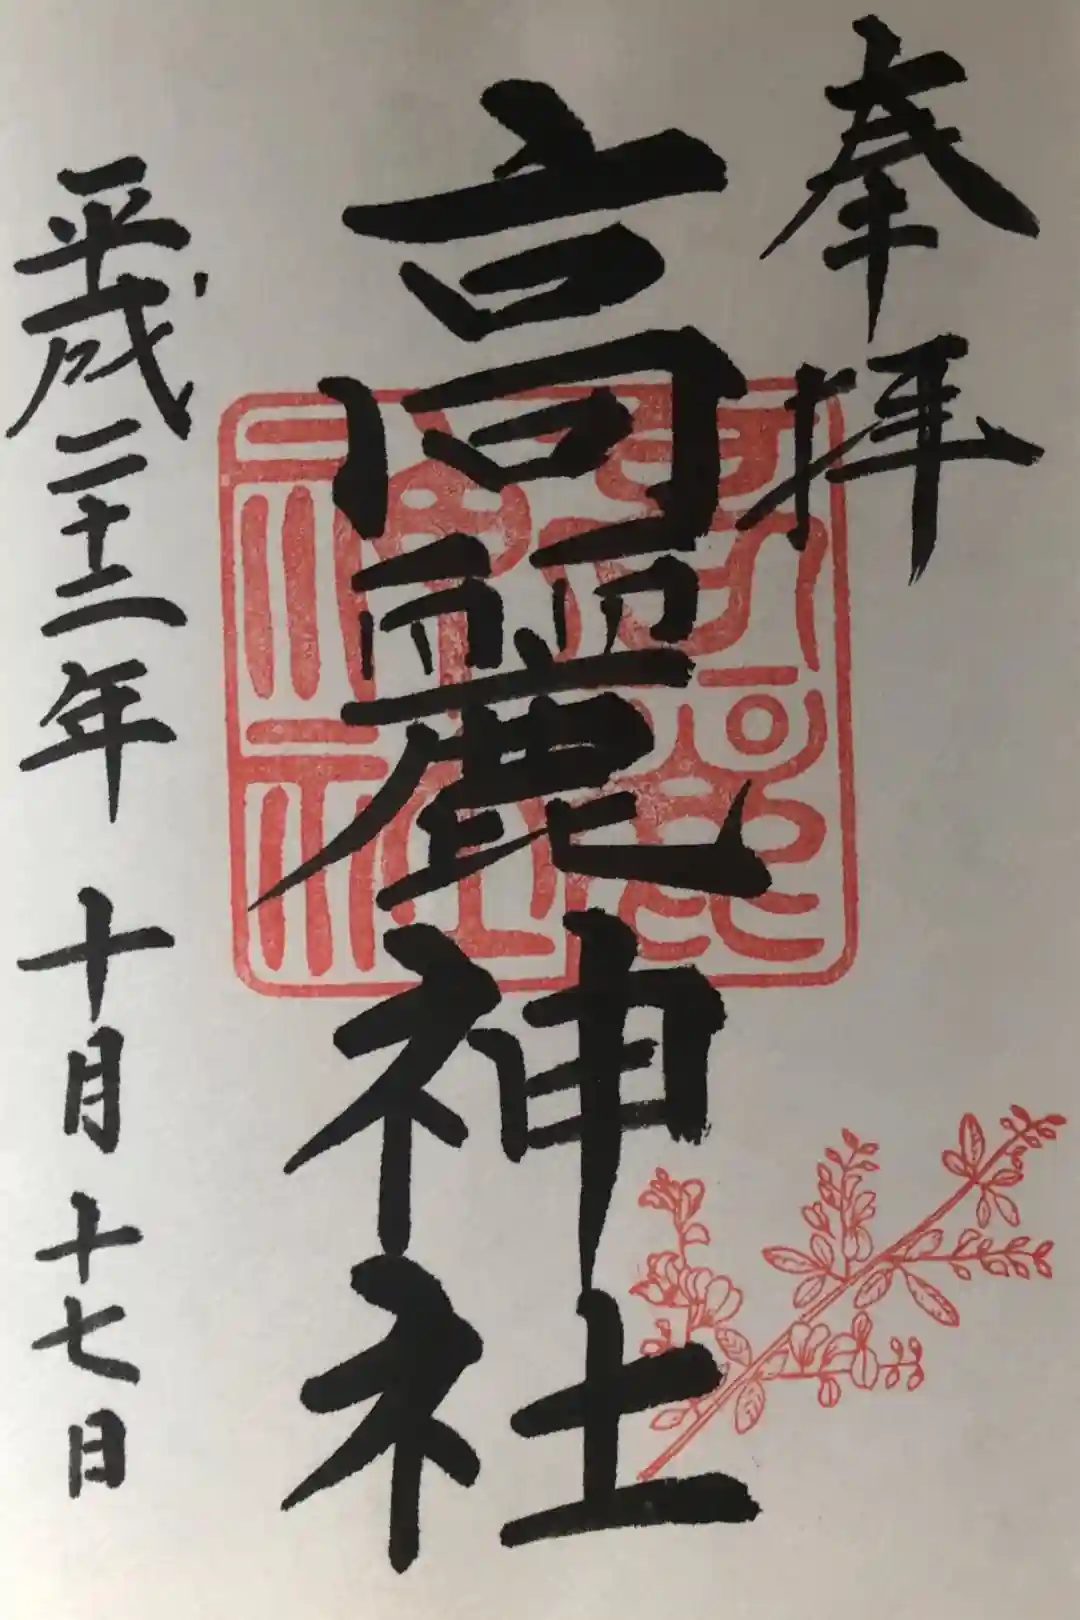 奉拝
高麗神社
平成二十二年 十月 十七日